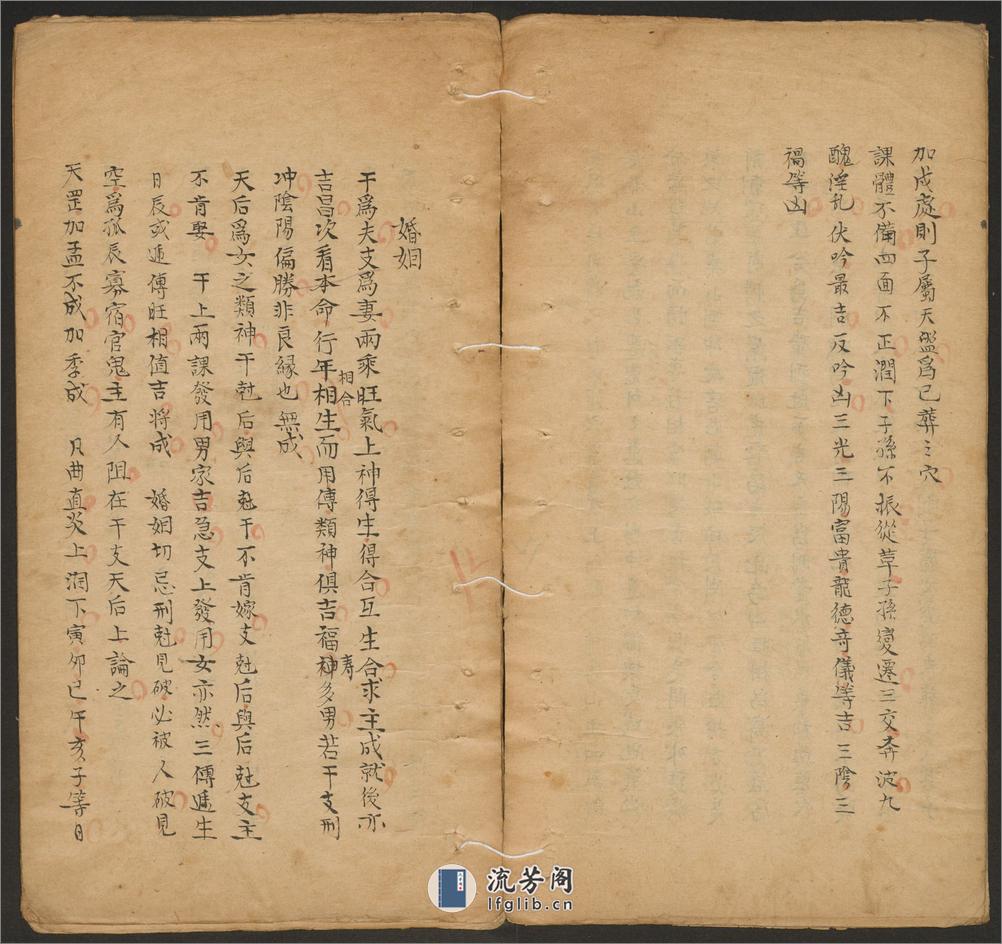 加戌處則子屬天盤為已葬之穴
課體不備四面不正潤下子孫不振從草子孫變遷三交奔波九
醜淫乱伏吟最吉反吟凶三光三陽富貴龍德竒儀等吉三陰三
禍等凶
婚姻
干為夫支為妻兩乘旺氣上神得生得合互生合求主成就後亦
吉昌次看本命行年相生相合而用傳類神俱吉福壽神多男若干支刑
冲陰陽偏勝非良緣也無成
天后為女之類神干尅后與后尅干不肯嫁支尅后與后尅支主
不肯娶 干上兩課發用男家吉急支上發用女亦然三傳遞生
日辰或遞傳旺相值吉將成 婚姻切忌刑尅見破必被人破見
空為孤辰寡宿官鬼主有人阻在干支天后上論之
天罡加孟不成加季成 凡曲直炎上潤下寅卯巳午亥子等日
流芳阁
lfglib.cn